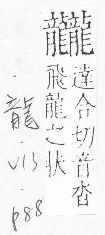 龖
達合切音沓
飛龍之狀
龍
V15
p88